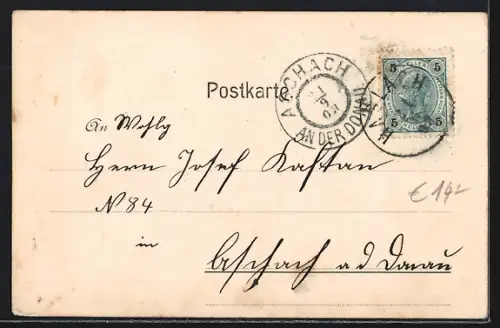 Postkarte.
ASCHACH
AN DER DONAU
5 5
5 5
An Wohlg
Herrn Josef Kastan
N 84
in
Aschach a d Donau
€ 14,-